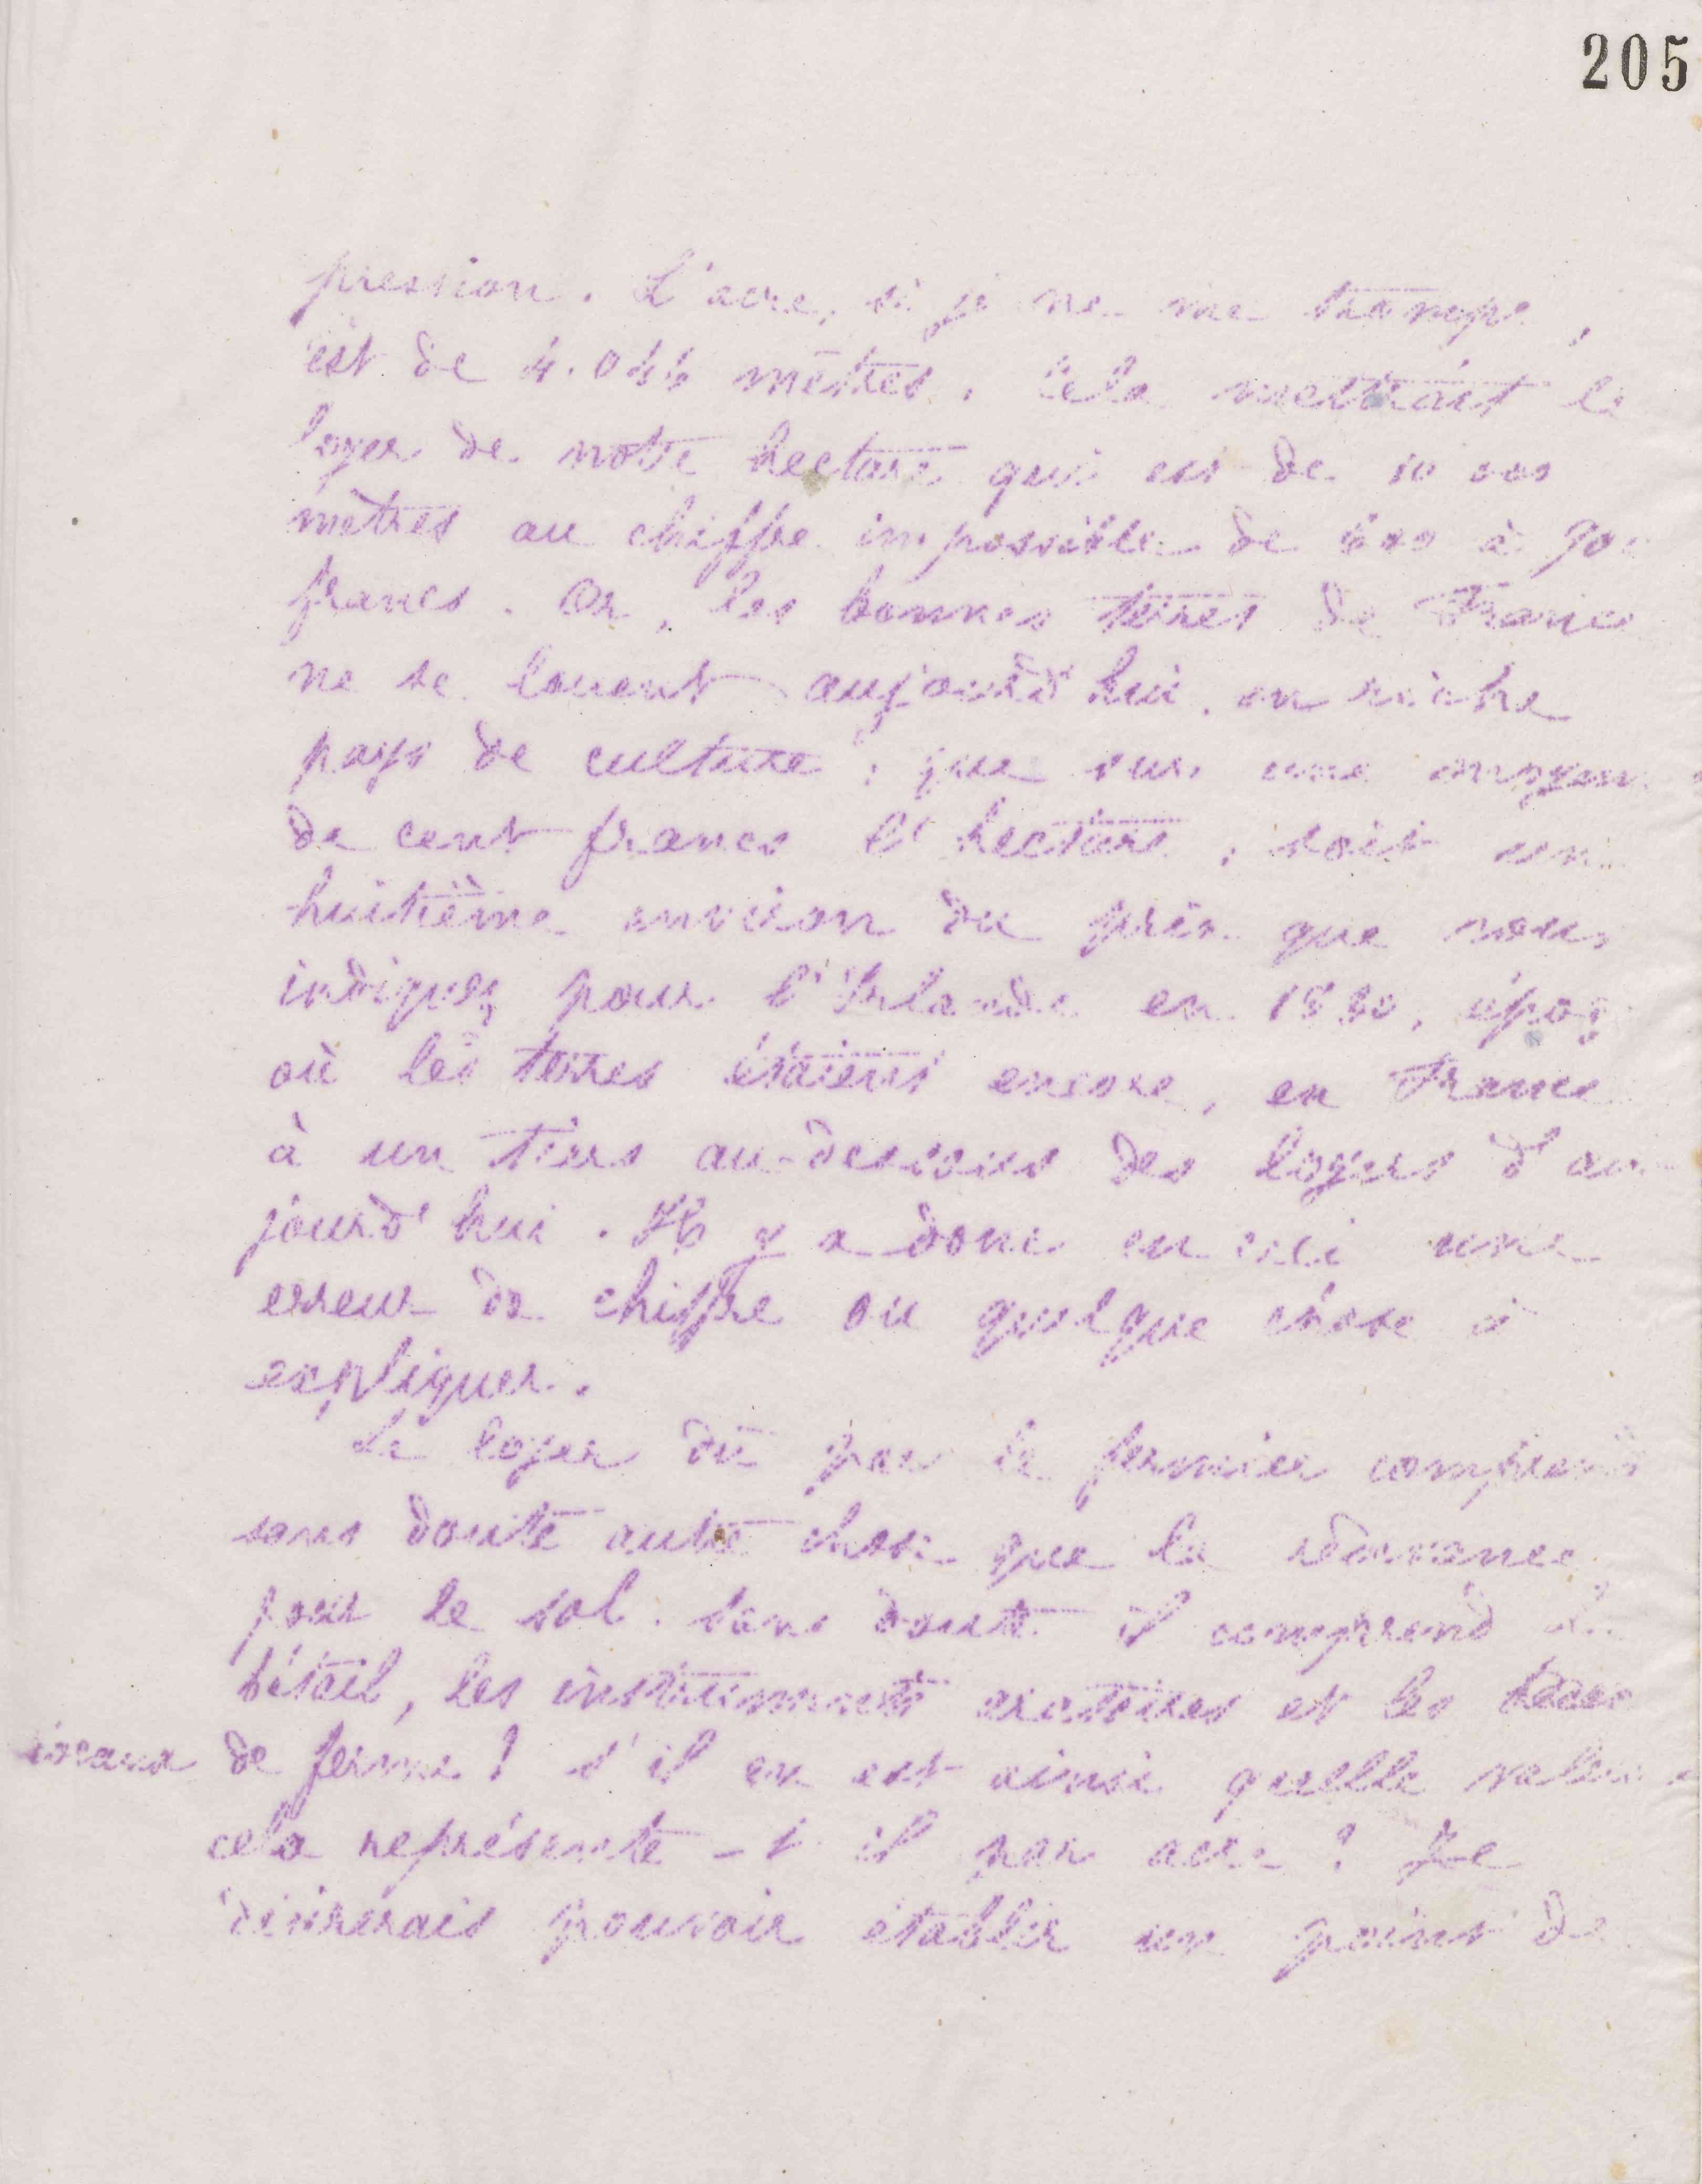 205
pression. L'acre, si je ne me trompe,
est de 4.044 mètres. Cela mettrait le
loyer de notre hectare qui est de 10 000
mètres au chiffre impossible de 800 à 900
francs. Or, les bonnes terres de France
ne se louent aujourd'hui, en riche
pays de culture, que sur une moyenne
de cent francs l'hectare, soit un
huitième environ du prix que vous
indiquez pour l'Irlande en 1830, époq
où les terres étaient encore, en France
à un tiers au-dessous des loyers d'au
jourd'hui. Il y a donc en ceci une
erreur de chiffre ou quelque chose à
expliquer.
Le loyer dû par le fermier comprend
sans doute autre chose que la redevance
pour le sol. Sans doute il comprend le
bétail, les instruments aratoires et les
de ferme! s'il en est ainsi quelle valeur
cela représente-t-il par acre? Je
désirerais pouvoir établir un point de